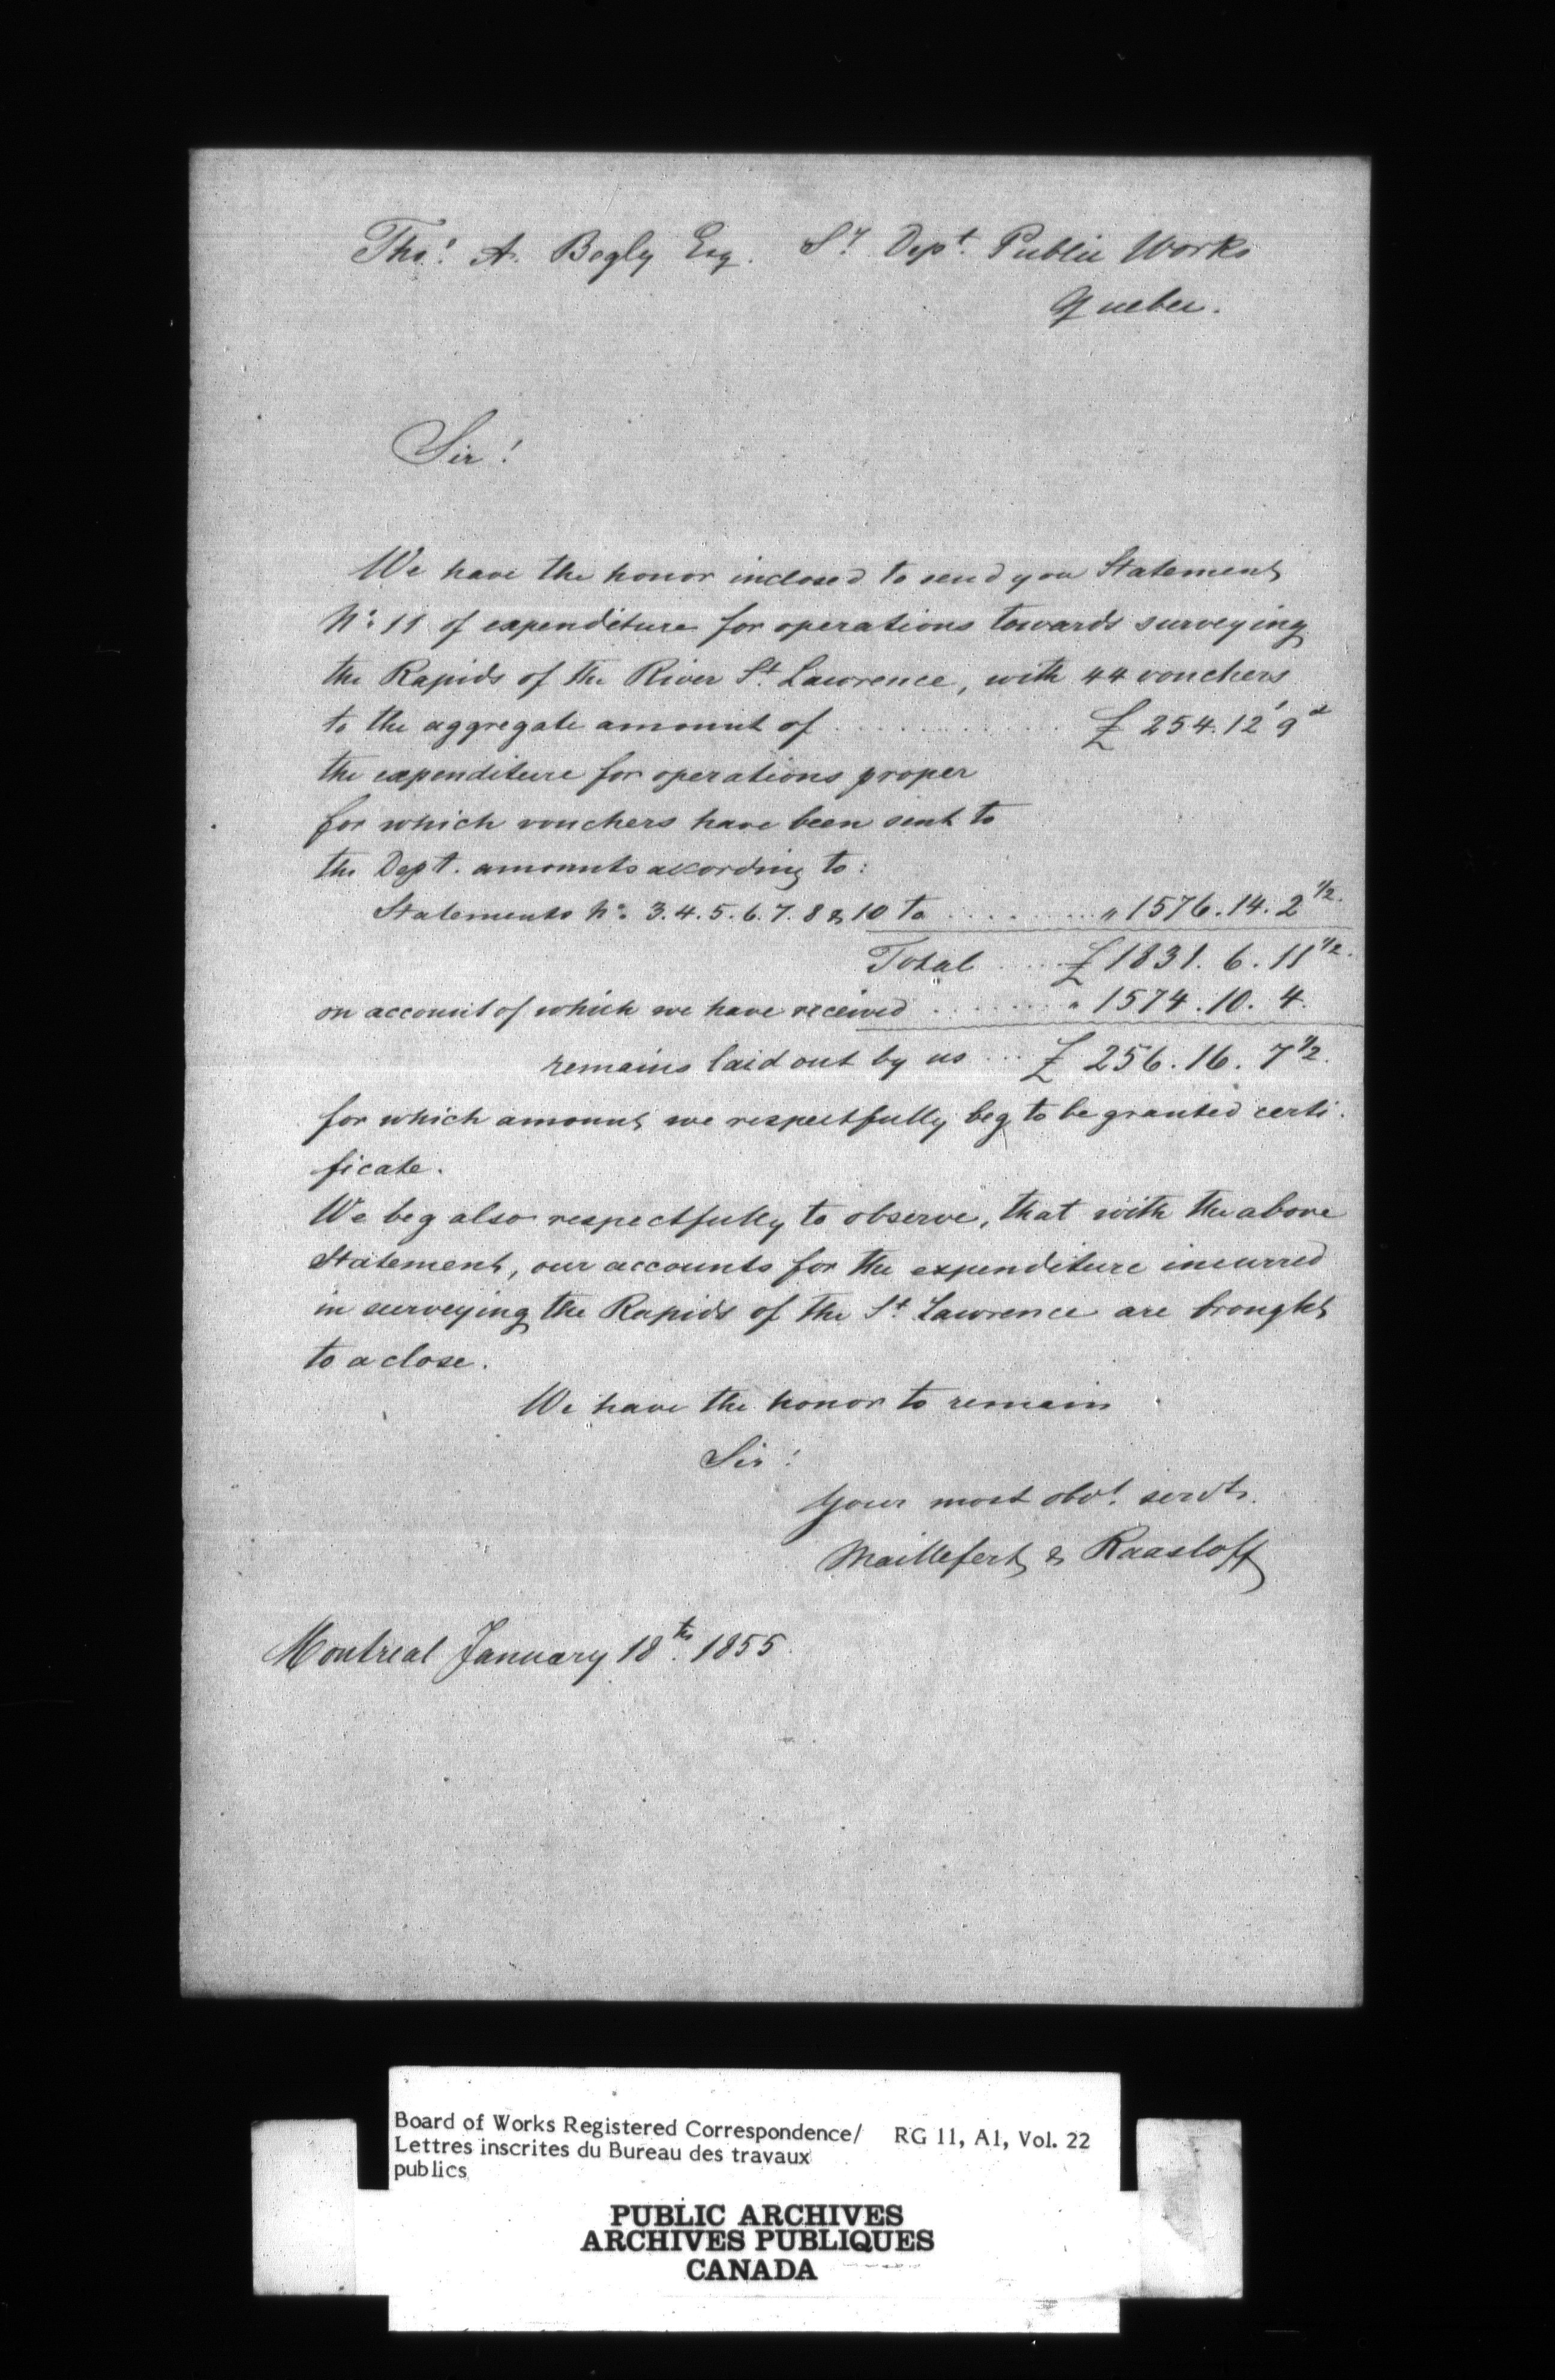 Thos. A. Begly Esq. Sy. Dept. Public Works
Quebec.
Sir!
We have the honor inclosed to send you Statement
No. 11 of expenditure for operations towards surveying
the Rapids of the River St. Lawrence, with 44 vouchers
to the aggregate amount of . . . . . . . . . . £ 254. 12s 9d
the expenditure for operations proper
for which vouchers have been sent to
the Dept. amounts according to:
Statements No. 3. 4. 5. 6. 7. 8 & 10 to . . . . . . . " 1576. 14. 2 1/2.
Total . . . . £ 1831. 6. 11 1/2.
on account of which we have received . . . . . . . " 1574. 10. 4.
remains laid out by us . . . £ 256. 16. 7 1/2.
for which amount we respectfully beg to be granted certi-
ficate.
We beg also respectfully to observe, that with the above
Statement, our accounts for the expenditure incurred
in surveying the Rapids of the St. Lawrence are brought
to a close.
We have the honor to remain
Sir!
Your most obdt. servts.
Maillefert & Raasloff
Montreal January 18th. 1855.
Board of Works Registered Correspondence/ RG 11, A1, Vol. 22
Lettres inscrites du Bureau des travaux
publics
PUBLIC ARCHIVES
ARCHIVES PUBLIQUES
CANADA